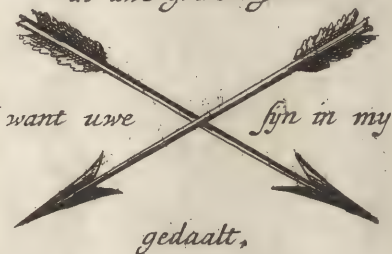 want uwe sijn in my
gedaalt,